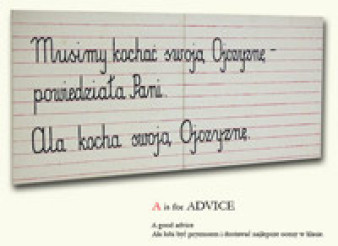 Musimy kochać swoją Ojczyznę -
powiedziała Pani.
Ala kocha swoją Ojczyznę.
A is for ADVICE
A good advice
Ala lubi być prymusem i dostawać najlepsze oceny w klasie